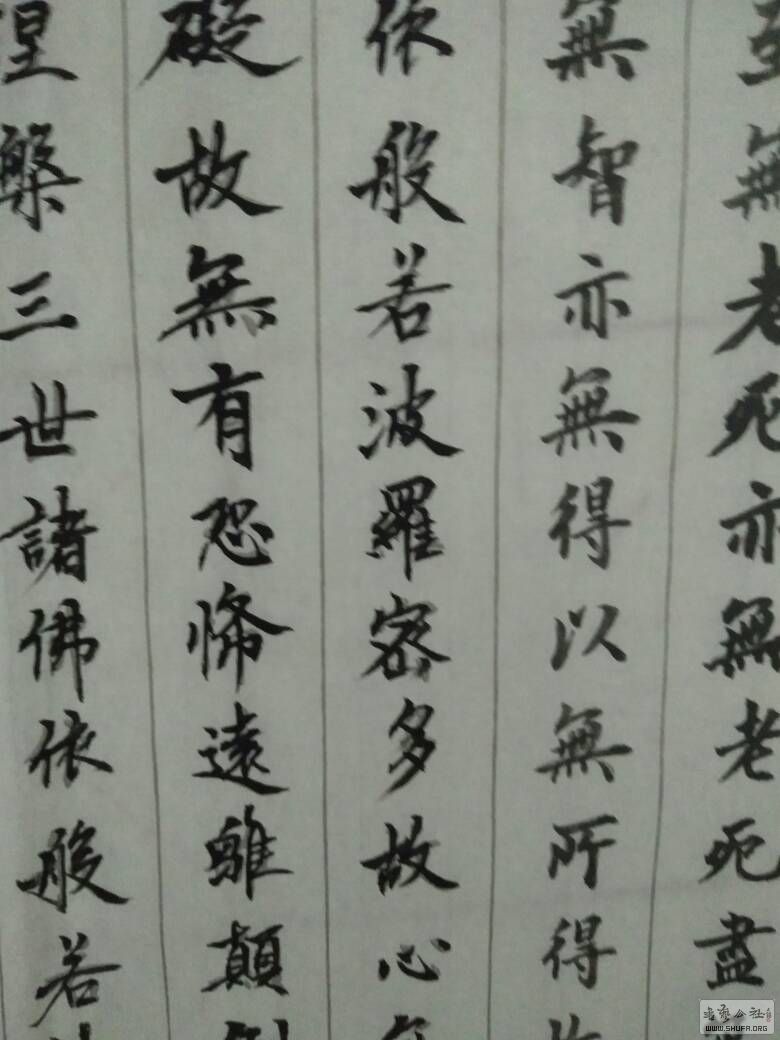 至無老死亦無老死盡
無智亦無得以無所得故
依般若波羅密多故心無
礙故無有恐怖遠離顛倒
涅槃三世諸佛依般若
書藝公社
WWW.SHUFA.ORG